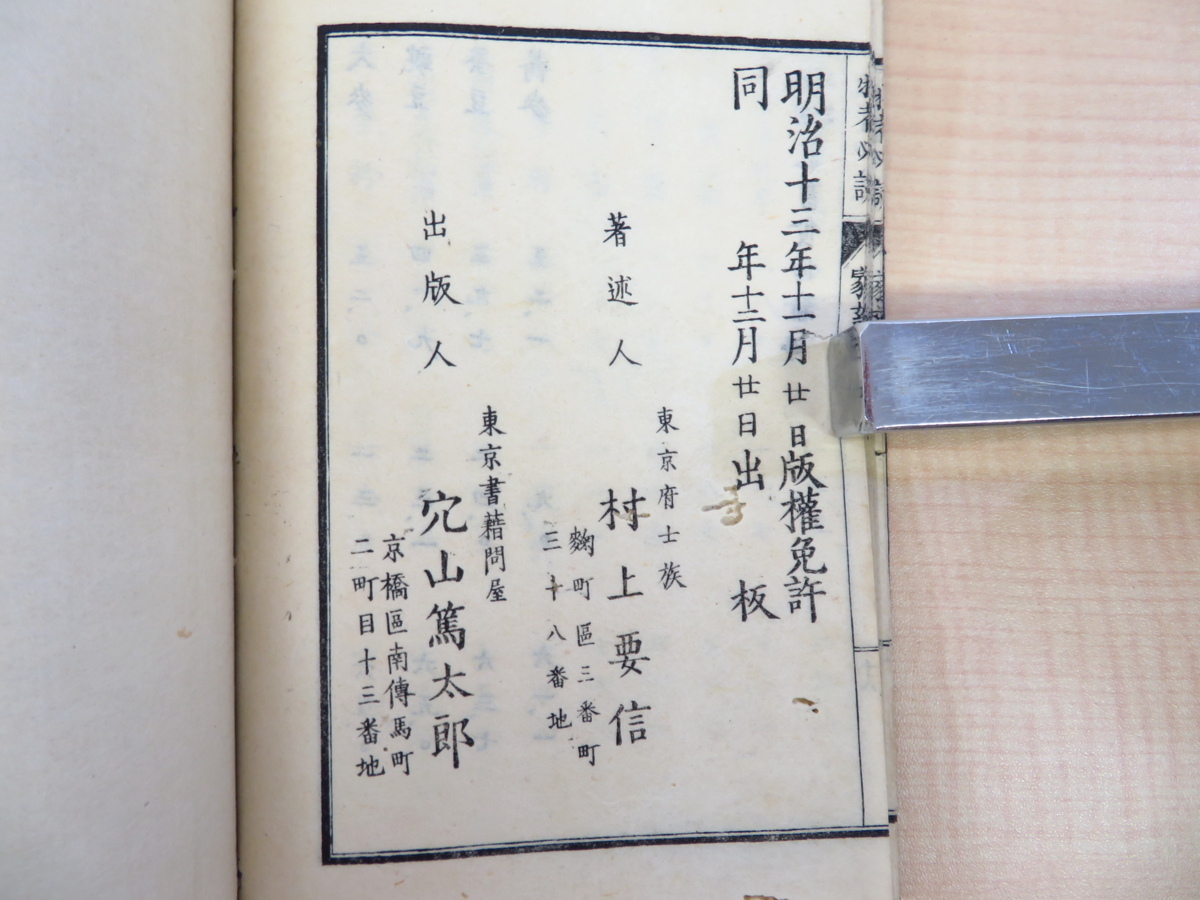 牧者必讀
明治十三年十一月廿日版權免許
同 年十二月廿日出板
東京府士族
著述人 村上要信
麴町區三番町
三十八番地
東京書藉問屋
出版人 穴山篤太郎
京橋區南傳馬町
二町目十三番地